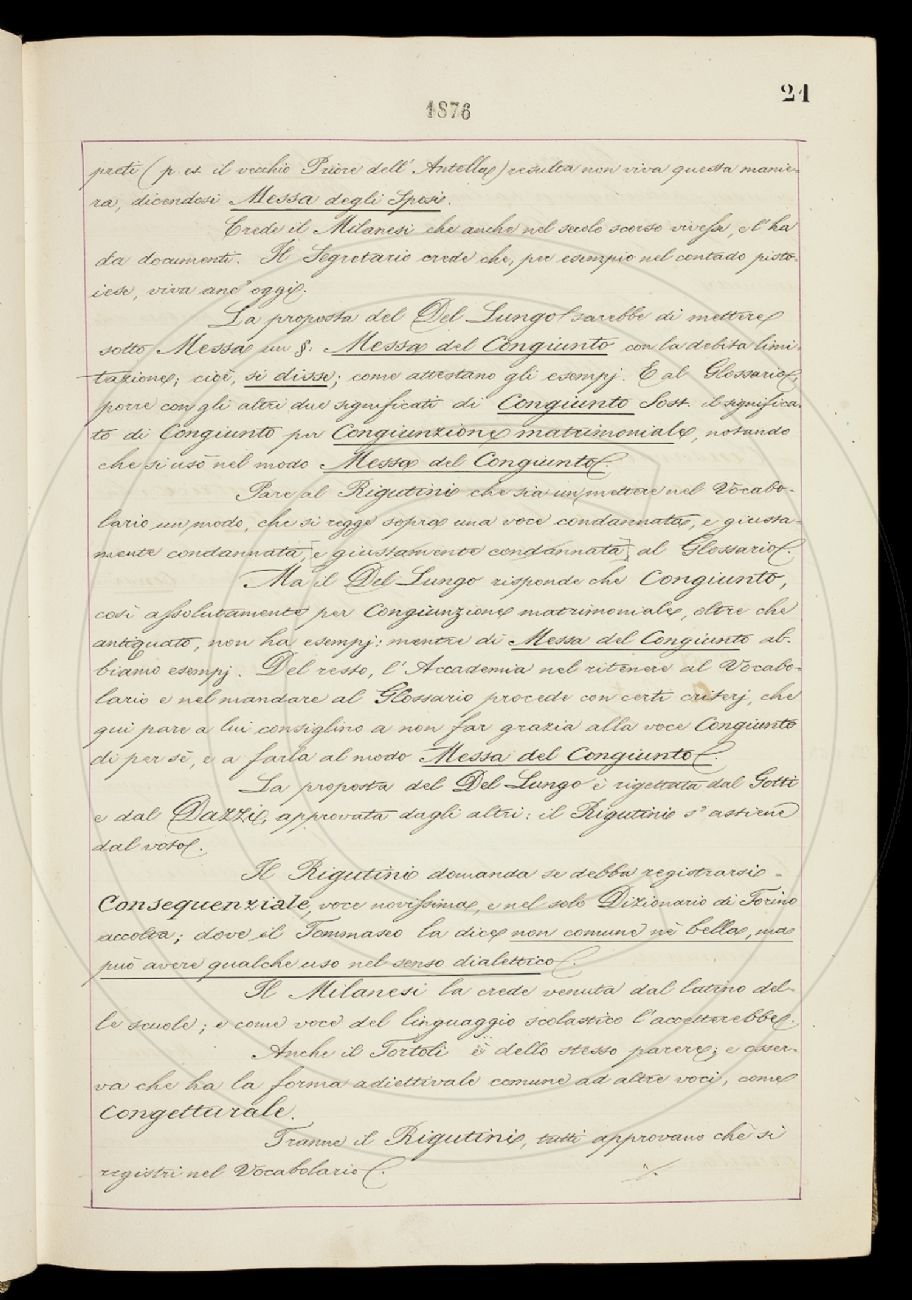 1876
21
preti (p. es. il vecchio Priore dell'Antella) resulta non viva questa manie-
ra, dicendosi Messa degli Sposi.
Crede il Milanesi che anche nel secolo scorso vivesse, e l'ha
da documenti. Il Segretario crede che, per esempio nel contado pisto-
iese, viva anc'oggi.
La proposta del Del Lungo sarebbe di mettere
sotto Messa un §. Messa del Congiunto con la debita limi-
tazione; cioè, si disse; come attestano gli esempj. E al Glossario,
porre con gli altri due significati di Congiunto Sost. il significa-
to di Congiunto per Congiunzione matrimoniale, notando
che si usò nel modo Messa del Congiunto.
Pare al Rigutini che sia un mettere nel Vocabo-
lario un modo, che si regge sopra una voce condannata, e giusta-
mente condannata, e giustamente condannata, al Glossario.
Ma il Del Lungo risponde che Congiunto,
così assolutamente per Congiunzione matrimoniale, oltre che
antiquato, non ha esempj: mentre di Messa del Congiunto ab-
biamo esempj. Del resto, l'Accademia nel ritenere al Vocabo-
lario e nel mandare al Glossario procede con certi criterj, che
qui pare a lui consiglino a non far grazia alla voce Congiunto
di per sè, e a farla al modo Messa del Congiunto.
La proposta del Del Lungo è rigettata dal Gotti
e dal Dazzi, approvata dagli altri: il Rigutini s'astiene
dal voto.
Il Rigutini domanda se debba registrarsi
Consequenziale, voce novissima, e nel solo Dizionario di Torino
accolta; dove il Tommaseo la dice non comune nè bella, ma
può avere qualche uso nel senso dialettico.
Il Milanesi la crede venuta dal latino del-
le scuole; e come voce del linguaggio scolastico l'accetterebbe.
Anche il Tortoli è dello stesso parere; e osser-
va che ha la forma adiettivale comune ad altre voci, come
Congetturale.
Tranne il Rigutini, tutti approvano che si
registri nel Vocabolario.